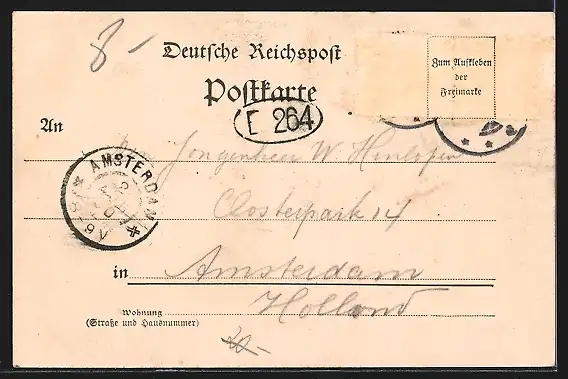 8 -
Deutsche Reichspost
Postkarte
Zum Aufkleben
der
Freimarke
E 264
An
Jongenheer W. Hinlopen
AMSTERDAM
Oosterpark 14
in Amsterdam
Holland
Wohnung
(Straße und Hausnummer)